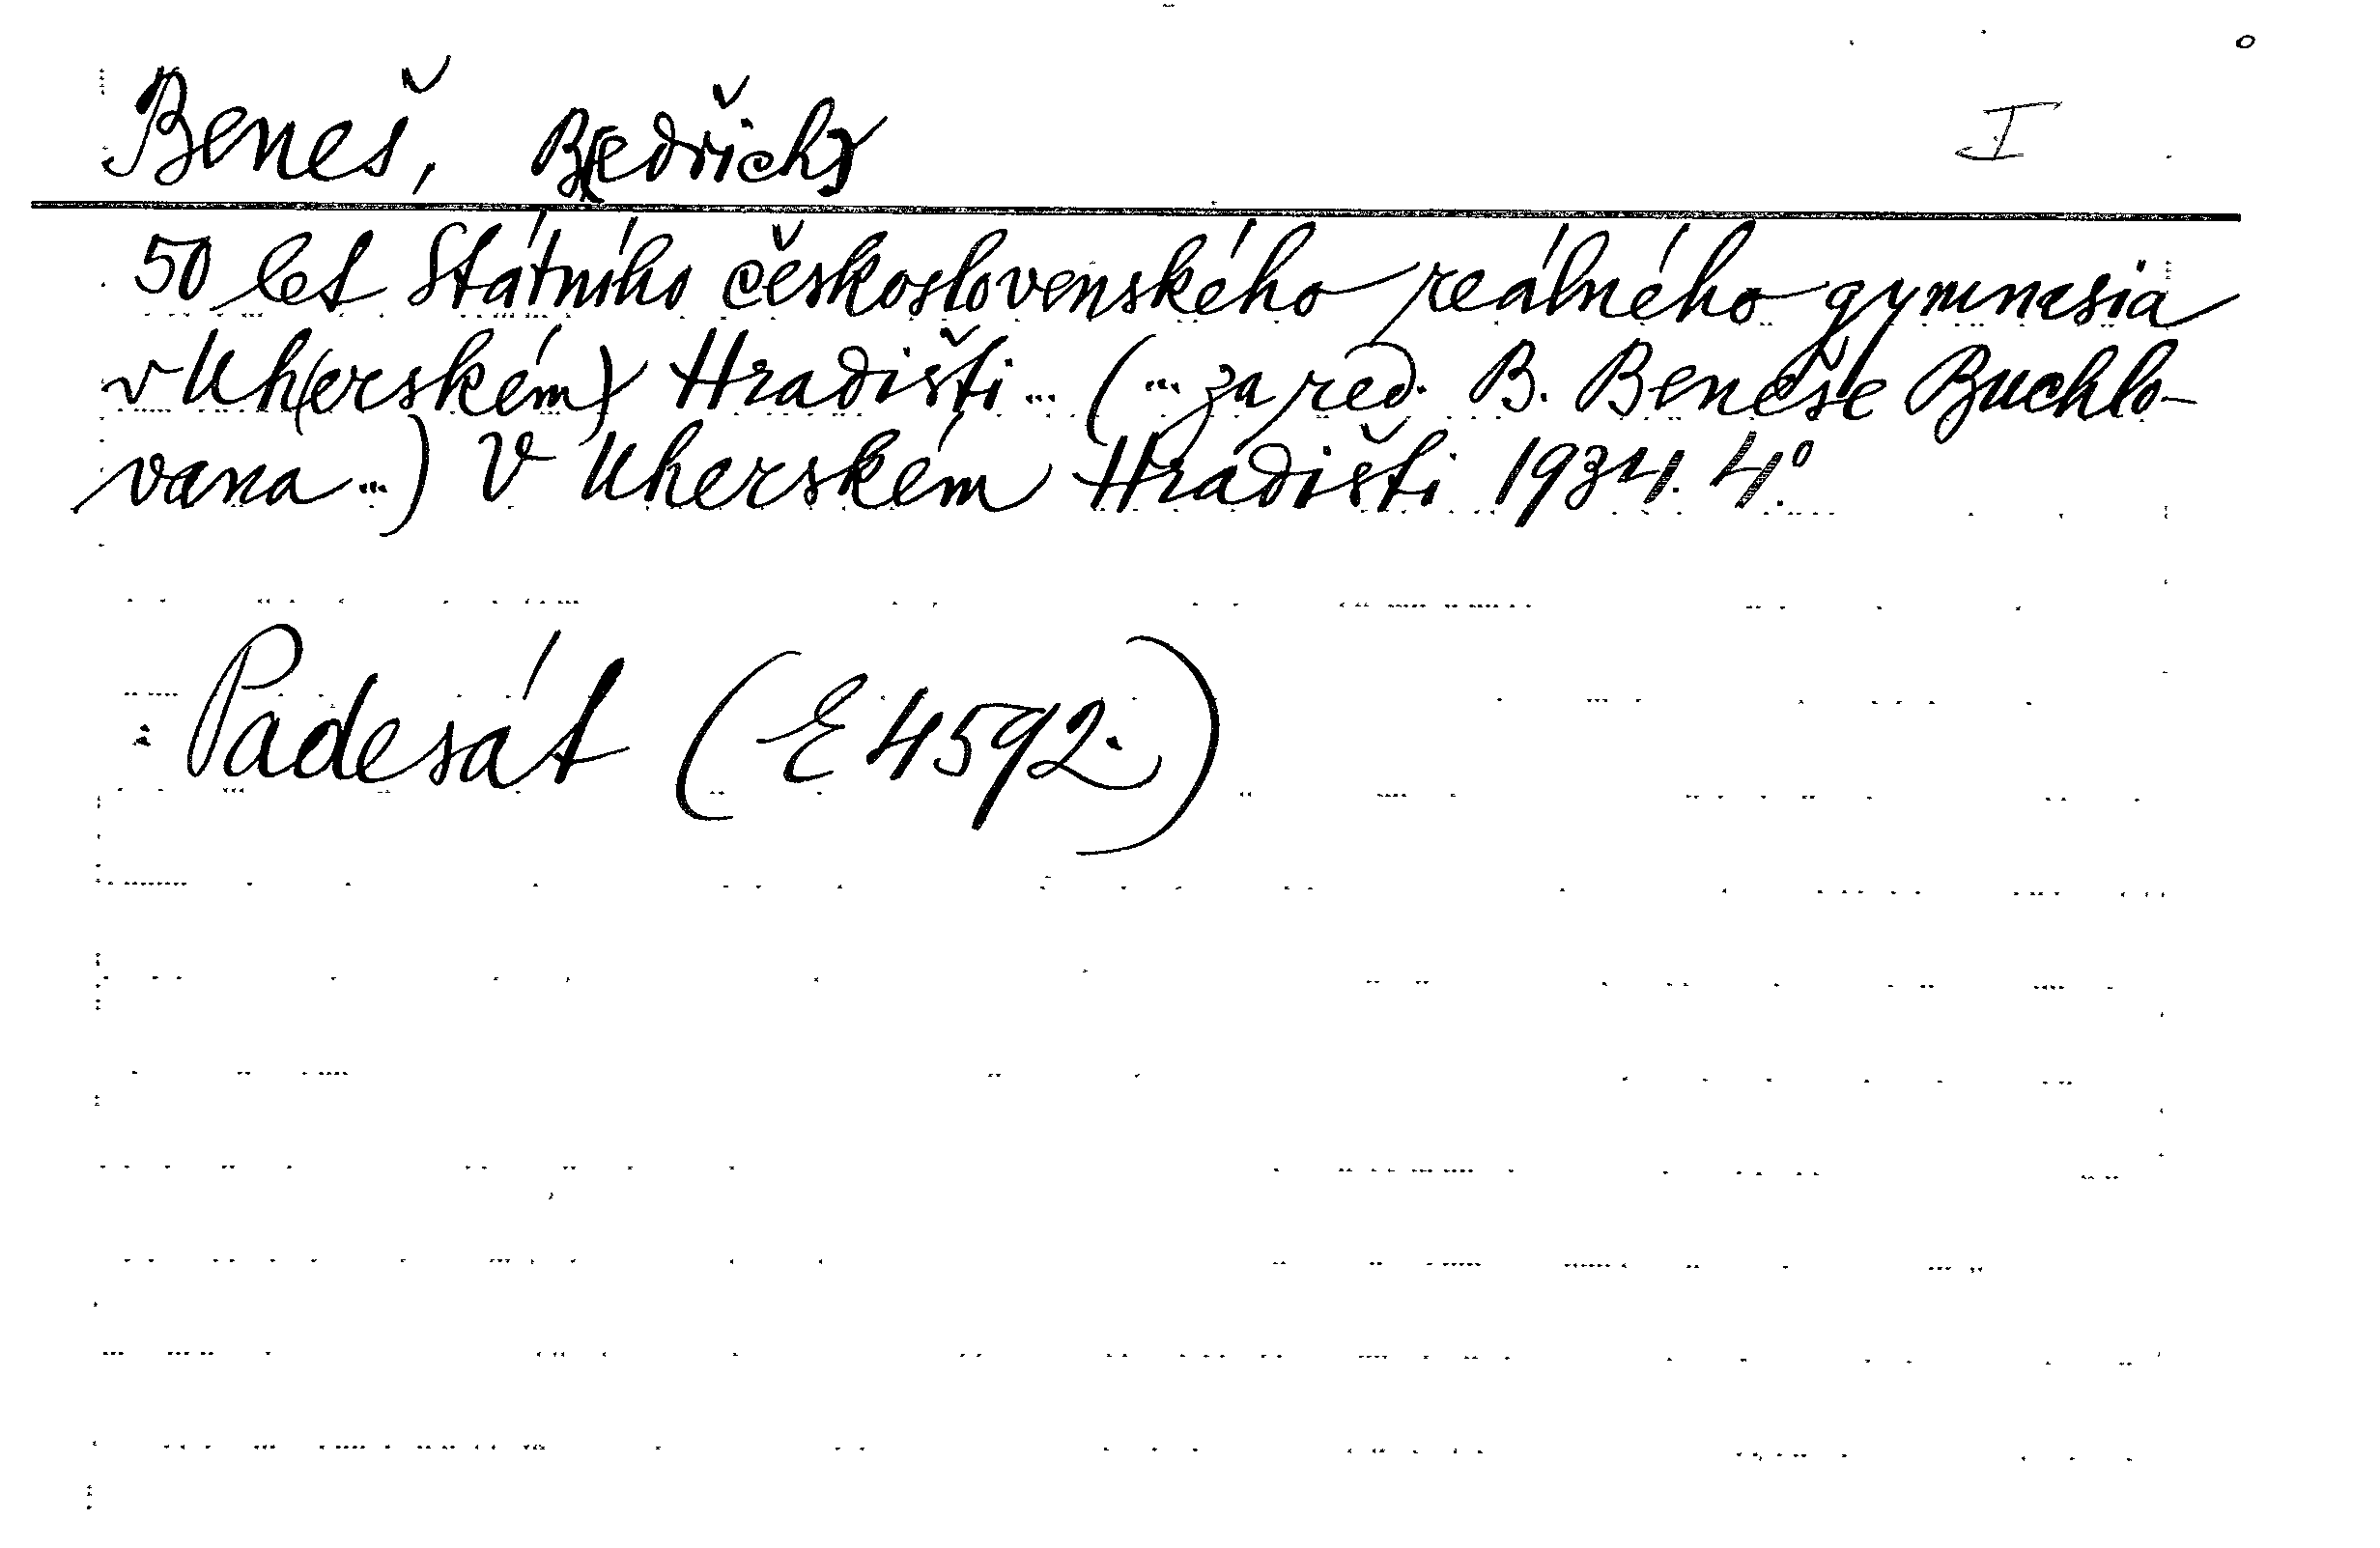 Beneš, B(edřich) I
50 let Státního československého reálného gymnasia
v Uh(erském) Hradišti... (... za red. B. Beneše Buchlo-
vana...) V Uherském Hradišti 1934. 4.°
Padesát (E 4592.)